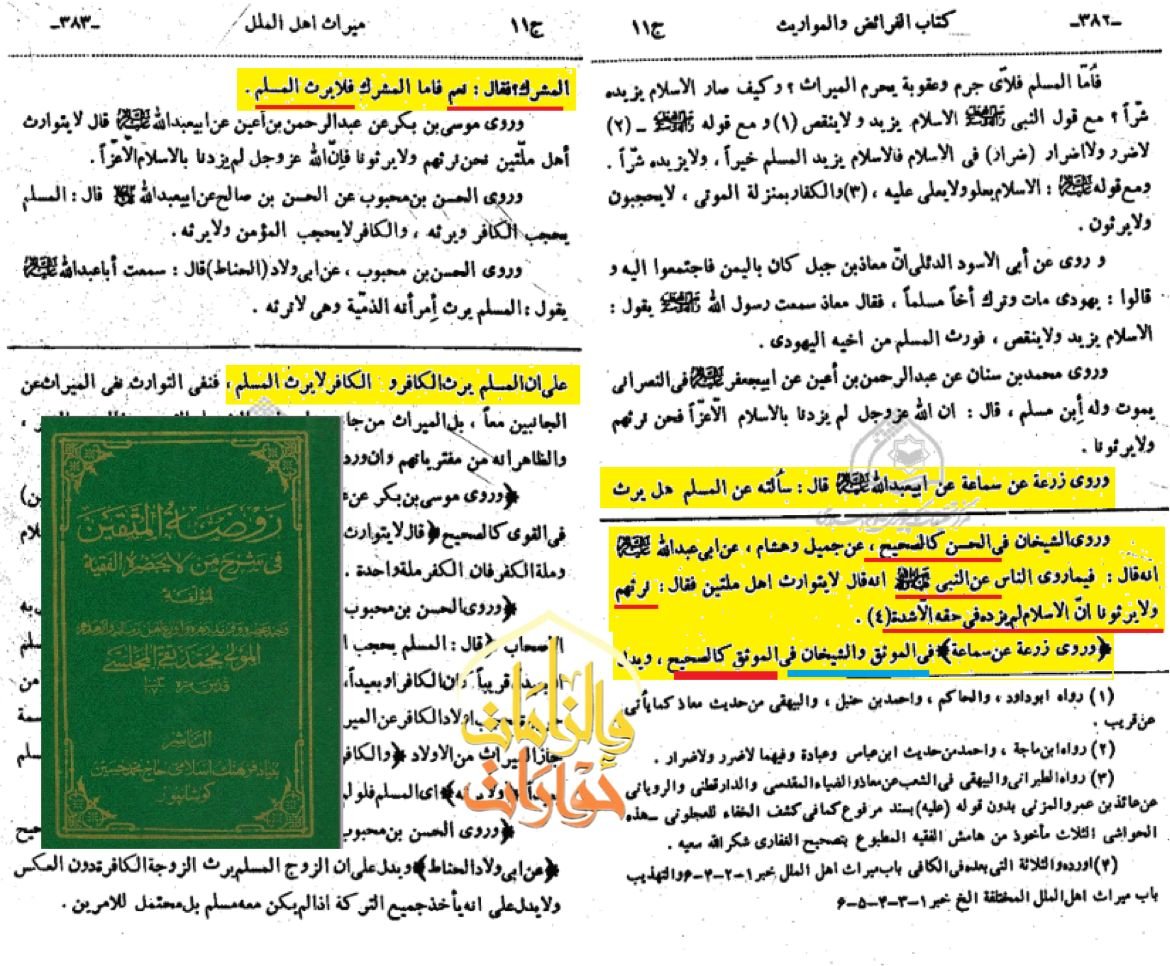 -٣٨٢- كتاب الفرائض والمواريث ج١١
فأمّا المسلم فلأى جرم وعقوبة يحرم الميراث ؟ وكيف صار الاسلام يزيده
شرّاً ؟ مع قول النبي ﷺ الاسلام يزيد ولاينقص (١) و مع قوله ﷺ ـ (٢)
لاضرر ولااضرار (ضرار) فى الاسلام فالاسلام يزيد المسلم خيراً ، ولايزيده شرّاً .
ومع قوله ﷺ : الاسلام يعلو ولايعلى عليه ، (٣) والكفار بمنزلة الموتى ، لايحجبون
ولايرثون .
و روى عن أبى الاسود الدئلى انّ معاذ بن جبل كان باليمن فاجتمعوا اليه و
قالوا : يهودى مات وترك أخاً مسلماً ، فقال معاذ سمعت رسول الله ﷺ يقول :
الاسلام يزيد ولاينقص ، فورث المسلم من اخيه اليهودى .
وروى محمد بن سنان عن عبدالرحمن بن أعين عن ابيجعفر عليه السلام فى النصرانى
يموت وله أبن مسلم ، قال : ان الله عزوجل لم يزدنا بالاسلام الّاعزّاً فنحن نرثهم
ولايرثونا .
وروى زرعة عن سماعة عن ابيعبدالله عليه السلام قال : سألته عن المسلم هل يرث
وروى الشيخان فى الحسن كالصحيح ، عن جميل وهشام ، عن ابى عبدالله عليه السلام
انه قال : فيما روى الناس عن النبى ﷺ انه قال لايتوارث اهل ملتين فقال : نرثهم
ولايرثونا انّ الاسلام لم يزده فى حقه الّاشدة (٤) .
﴿وروى زرعة عن سماعة﴾ فى الموثق والشيخان فى الموثق كالصحيح ، ويدل
(١) رواه ابوداود ، والحاكم ، واحمد بن حنبل ، والبيهقى من حديث معاذ كما يأتى
عن قريب .
(٢) رواه ابن ماجة ، واحمد من حديث ابن عباس وعبادة وفيهما لاضرر ولاضرار .
(٣) رواه الطبرانى والبيهقى فى الشعب عن معاذ والضياء المقدسى والدارقطنى والرويانى
عن عائذ بن عمر والمزنى بدون قوله (عليه) بسند مرفوع كما فى كشف الخفاء للعجلونى ـ هذه
الحواشى الثلاث مأخوذ من هامش الفقيه المطبوع بتصحيح الغفارى شكر الله سعيه .
(٤) اورده والثلاثة التى بعده فى الكافى باب ميراث اهل الملل خبر ١-٢-٣-٦ والتهذيب
باب ميراث اهل الملل المختلفة الخ خبر ١-٣-٤-٥-٦
ج١١ ميراث اهل الملل -٣٨٣-
المشرك؟ فقال : نعم فاما المشرك فلايرث المسلم .
وروى موسى بن بكر عن عبدالرحمن بن أعين عن ابيعبدالله عليه السلام قال لايتوارث
أهل ملّتين نحن نرثهم ولايرثونا فانّ الله عزوجل لم يزدنا بالاسلام الّاعزّاً .
وروى الحسن بن محبوب عن الحسن بن صالح عن ابيعبدالله عليه السلام قال : المسلم
يحجب الكافر ويرثه ، والكافر لايحجب المؤمن ولايرثه .
وروى الحسن بن محبوب ، عن ابى ولاد (الحناط) قال : سمعت أباعبدالله عليه السلام
يقول : المسلم يرث امرأته الذمّية وهى لاترثه .
على ان المسلم يرث الكافر و : الكافر لايرث المسلم ، فنفى التوارث نفى الميراث عن
الجانبين معاً ، بل الميراث من جا
والظاهر انه من مفترياتهم وان ورد
﴿وروى موسى بن بكر عن ع
فى القوى كالصحيح ﴿قال لايتوارث
وملة الكفر فان الكفر ملة واحدة .
﴿وروى الحسن بن محبوب
الاصحاب ﴿قال : المسلم يحجب ا
قريباً وان الكافر او بعيداً،
اولاد الكافر عن المير
جاز الميراث من الاولاد ﴿والكافر
اى المسلم فلو لم
﴿وروى الحسن بن محبوب
﴿عن ابى ولاد الحناط﴾ ويدل على ان الزوج المسلم يرث الزوجة الكافرة دون العكس
ولايدل على انه يأخذ جميع التركة اذا لم يكن معه مسلم بل محتمل للامرين .
روضة المتقين
فى شرح من لا يحضره الفقيه
لمؤلفه
المولى محمد تقى المجلسى
الناشر
بنياد فرهنك اسلامى حاج محمد حسين
كوشانپور
والزامات
حوارات